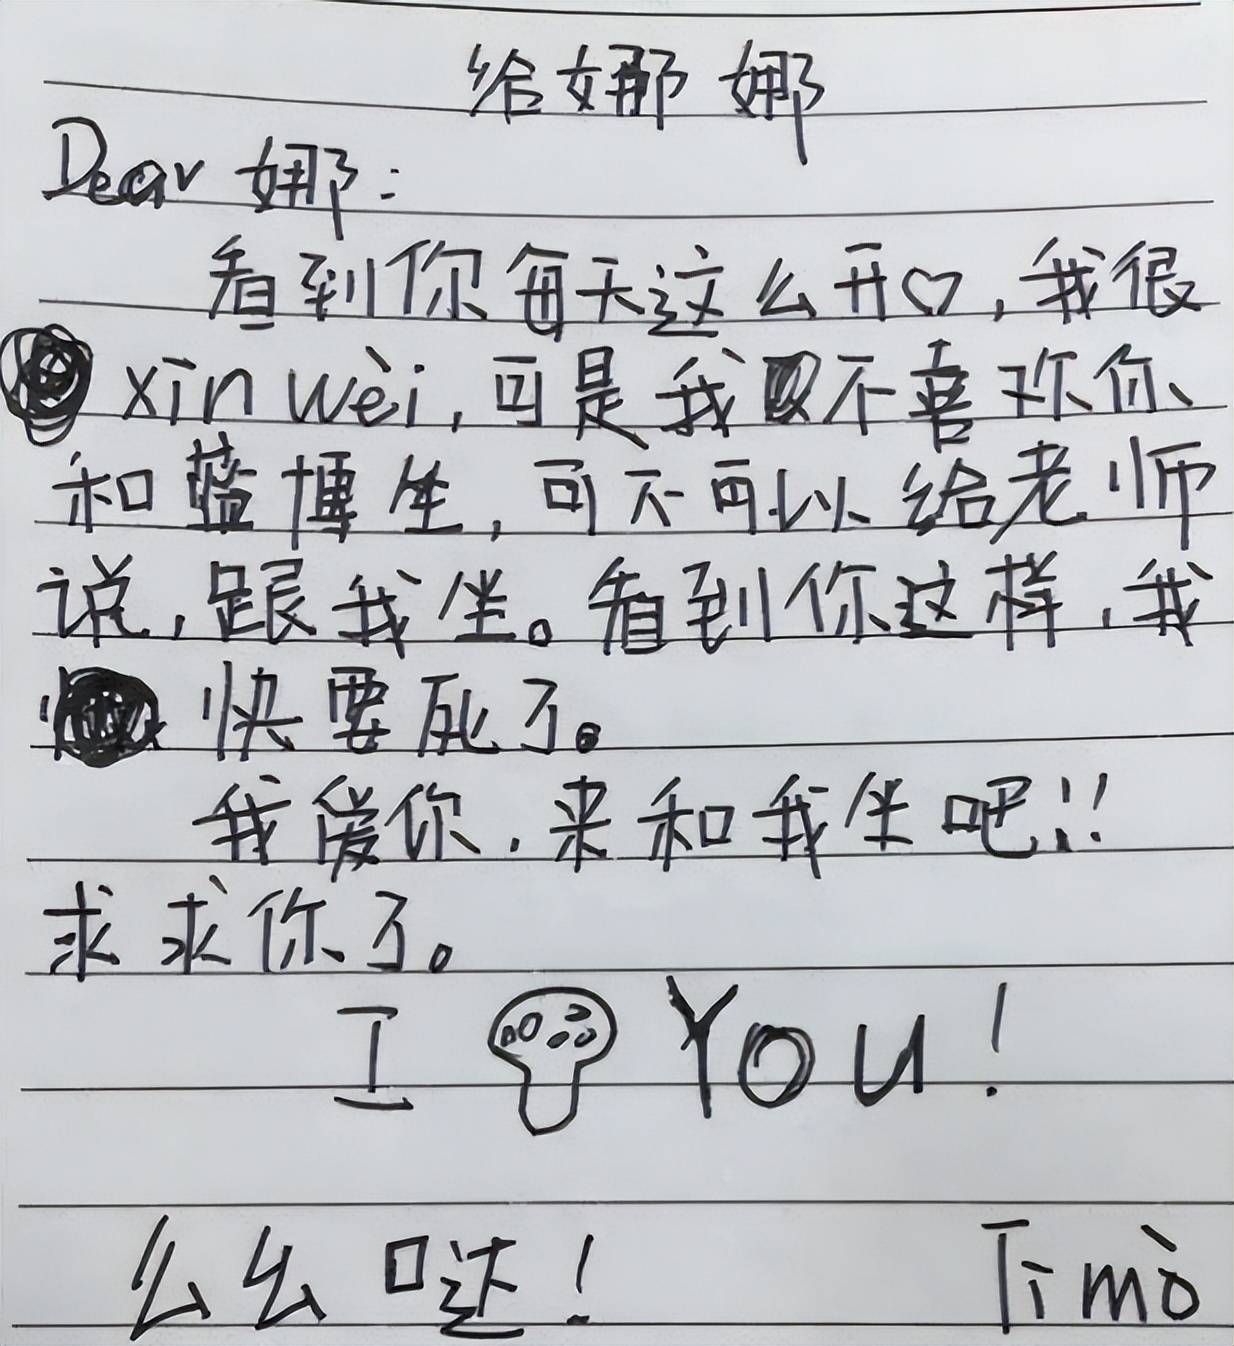 给娜娜
Dear 娜:
看到你每天这么开♡,我很
xīn wèi,可是我不喜欢你
和蓝博坐,可不可以给老师
说,跟我坐。看到你这样,我
快要死了。
我爱你,来和我坐吧!!
求求你了。
I You!
么么哒! Timò